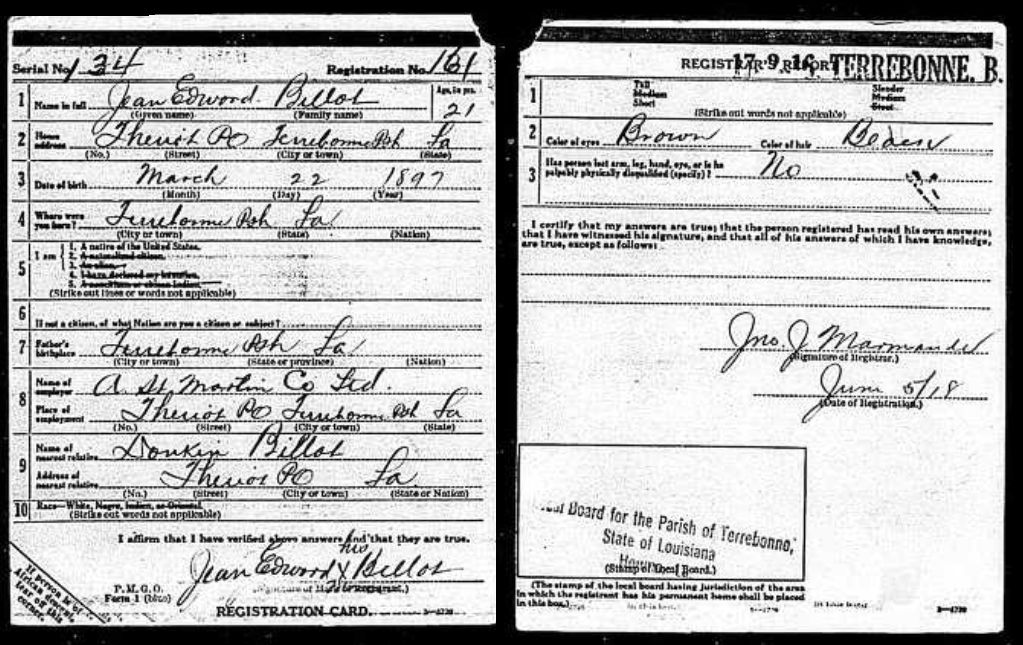 Serial No. 134 Registration No. 161
1 Name in full Jean Edword Billot Age, in yrs. 21
(Given name) (Family name)
2 Home address Theriot PO Terrebonne Psh La
(No.) (Street) (City or town) (State)
3 Date of birth March 22 1897
(Month) (Day) (Year)
4 Where were you born? Terrebonne Psh La
(City or town) (State) (Nation)
5 I am
1. A native of the United States.
2. A naturalized citizen.
3. An alien.
4. I have declared my intention.
5. A noncitizen or citizen Indian.
(Strike out lines or words not applicable)
6 If not a citizen, of what Nation are you a citizen or subject?
7 Father's birthplace Terrebonne Psh La
(City or town) (State or province) (Nation)
8 Name of employer A. St Martin Co Ltd.
Place of employment Theriot PO Terrebonne Psh La
(No.) (Street) (City or town) (State)
9 Name of nearest relative Donkin Billot
Address of nearest relative Theriot PO La
(No.) (Street) (City or town) (State or Nation)
10 Race—White, Negro, Indian, or Oriental.
(Strike out words not applicable)
I affirm that I have verified above answers and that they are true.
his
Jean Edword X Billot
P.M.G.O.
Form 1 (blue)
REGISTRATION CARD.
If person is of African descent, tear off this corner.
REGISTRAR'S REPORT
17.9.16. TERREBONNE. B.
1 Tall Medium Short Slender Medium Stout
(Strike out words not applicable)
2 Color of eyes Brown Color of hair
3 Has person lost arm, leg, hand, eye, or is he
palpably physically disqualified (specify)? No
I certify that my answers are true; that the person registered has read his own answers;
that I have witnessed his signature, and that all of his answers of which I have knowledge,
are true, except as follows:
Jno. J. Marmande
(Signature of Registrar.)
June 5/18
(Date of Registration.)
Local Board for the Parish of Terrebonne,
State of Louisiana
(Stamp of Local Board.)
(The stamp of the local board having jurisdiction of the area
in which the registrant has his permanent home shall be placed
in this box.)